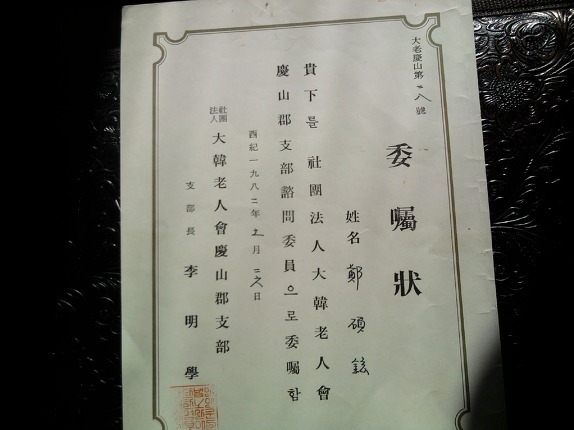 大老慶山第 八 號
委囑狀
姓名 鄭碩鉉
貴下를 社團法人大韓老人會
慶山郡支部諮問委員으로委囑함
西紀一九八二年 月 日
社團法人 大韓老人會慶山郡支部
支部長 李明學